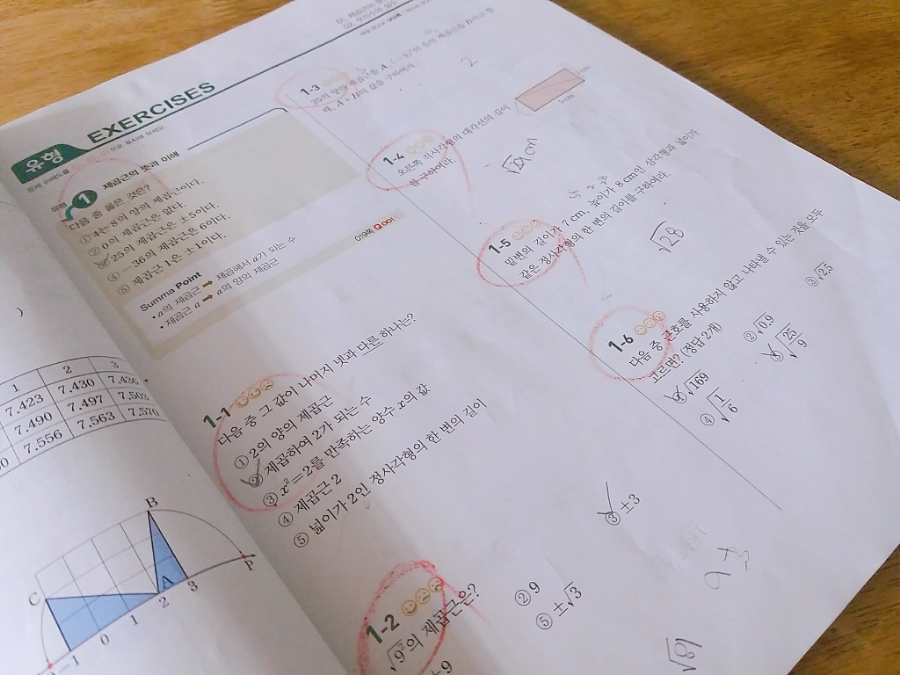 유형 EXERCISES
유형 1 제곱근의 뜻과 이해
다음 중 옳은 것은?
① 4는 8의 양의 제곱근이다.
② 0의 제곱근은 없다.
③ 25의 제곱근은 ±5이다.
④ −36의 제곱근은 6이다.
⑤ 제곱근 1은 ±1이다.
Summa Point
• a의 제곱근 ➡ 제곱해서 a가 되는 수
• 제곱근 a ➡ a의 양의 제곱근
1-1
다음 중 그 값이 나머지 넷과 다른 하나는?
① 2의 양의 제곱근
② 제곱하여 2가 되는 수
③ x²=2를 만족하는 양수 x의 값
④ 제곱근 2
⑤ 넓이가 2인 정사각형의 한 변의 길이
1-2
√9²의 제곱근은?
② 9
③ ±3
⑤ ±√3
9 ±3
√81
1-3
2
1-4
오른쪽 직사각형의 대각선의 길이
를 구하여라.
5 cm
1-5
밑변의 길이가 7 cm, 높이가 8 cm인 삼각형과 넓이가
같은 정사각형의 한 변의 길이를 구하여라.
√28
1-6
다음 중 근호를 사용하지 않고 나타낼 수 있는 것을 모두
고르면? (정답 2개)
√169
② √0.9
③ √2.5
④ √1/6
√25/9
1 2 3
7.423 7.430 7.436
7.490 7.497 7.503
7.556 7.563 7.570
B
C
A
P
−1 0 1 2 3